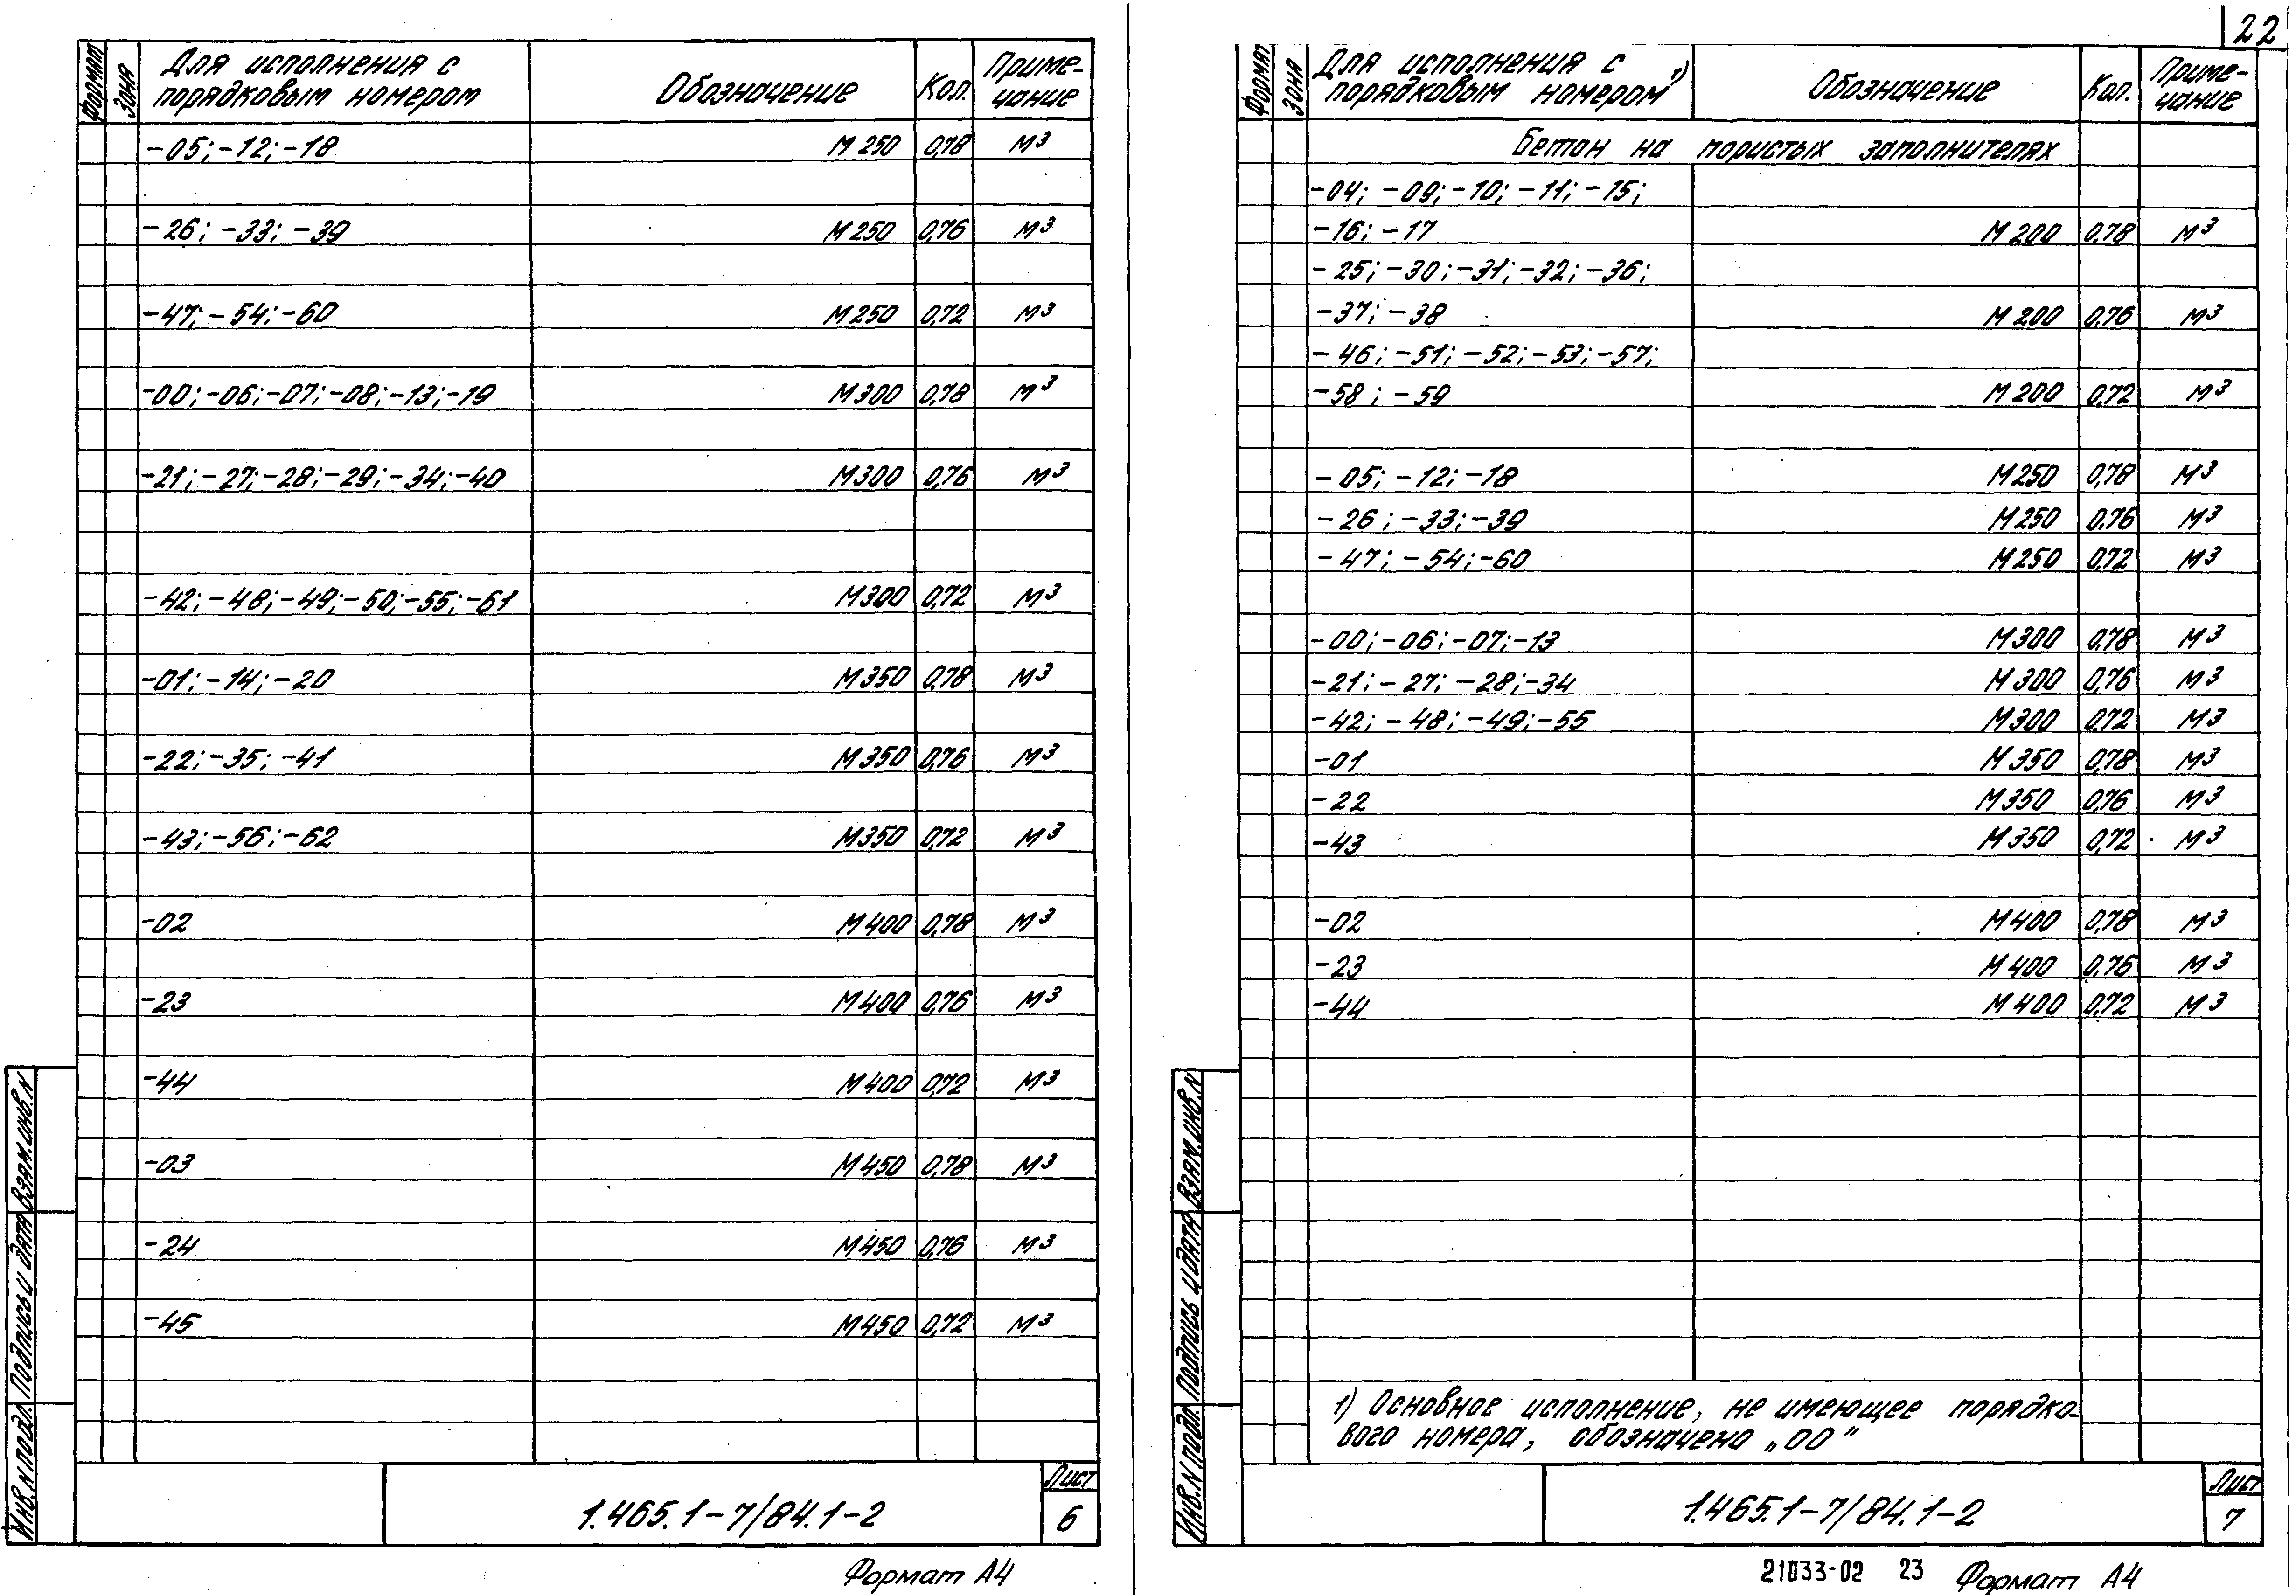 Формат
Зона
Для исполнения с
порядковым номером
Обозначение
Кол.
Приме-
чание
-05; -12; -18 М250 0,78 м³
-26; -33; -39 М250 0,76 м³
-47; -54; -60 М250 0,72 м³
-00; -06; -07; -08; -13; -19 М300 0,78 м³
-21; -27; -28; -29; -34; -40 М300 0,76 м³
-42; -48; -49; -50; -55; -61 М300 0,72 м³
-01; -14; -20 М350 0,78 м³
-22; -35; -41 М350 0,76 м³
-43; -56; -62 М350 0,72 м³
-02 М400 0,78 м³
-23 М400 0,76 м³
-44 М400 0,72 м³
-03 М450 0,78 м³
-24 М450 0,76 м³
-45 М450 0,72 м³
Взам. инв. N
Подпись и дата
Инв. N подл.
1.465.1-7/84.1-2
Лист
6
Формат А4
22
Формат
Зона
Для исполнения с
порядковым номером 1)
Обозначение
Кол.
Приме-
чание
Бетон на пористых заполнителях
-04; -09; -10; -11; -15;
-16; -17 М200 0,78 м³
-25; -30; -31; -32; -36;
-37; -38 М200 0,76 м³
-46; -51; -52; -53; -57;
-58; -59 М200 0,72 м³
-05; -12; -18 М250 0,78 м³
-26; -33; -39 М250 0,76 м³
-47; -54; -60 М250 0,72 м³
-00; -06; -07; -13 М300 0,78 м³
-21; -27; -28; -34 М300 0,76 м³
-42; -48; -49; -55 М300 0,72 м³
-01 М350 0,78 м³
-22 М350 0,76 м³
-43 М350 0,72 м³
-02 М400 0,78 м³
-23 М400 0,76 м³
-44 М400 0,72 м³
1) Основное исполнение, не имеющее порядко-
вого номера, обозначено „00"
Взам. инв. N
Подпись и дата
Инв. N подл.
1.465.1-7/84.1-2
Лист
7
21033-02 23 Формат А4